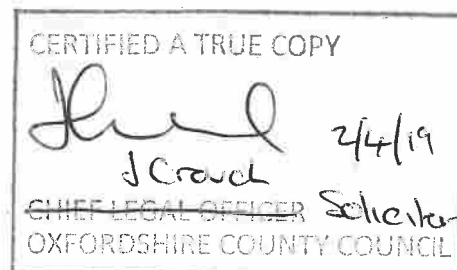 CERTIFIED A TRUE COPY
2/4/19
J Crouch
CHIEF LEGAL OFFICER Solicitor
OXFORDSHIRE COUNTY COUNCIL